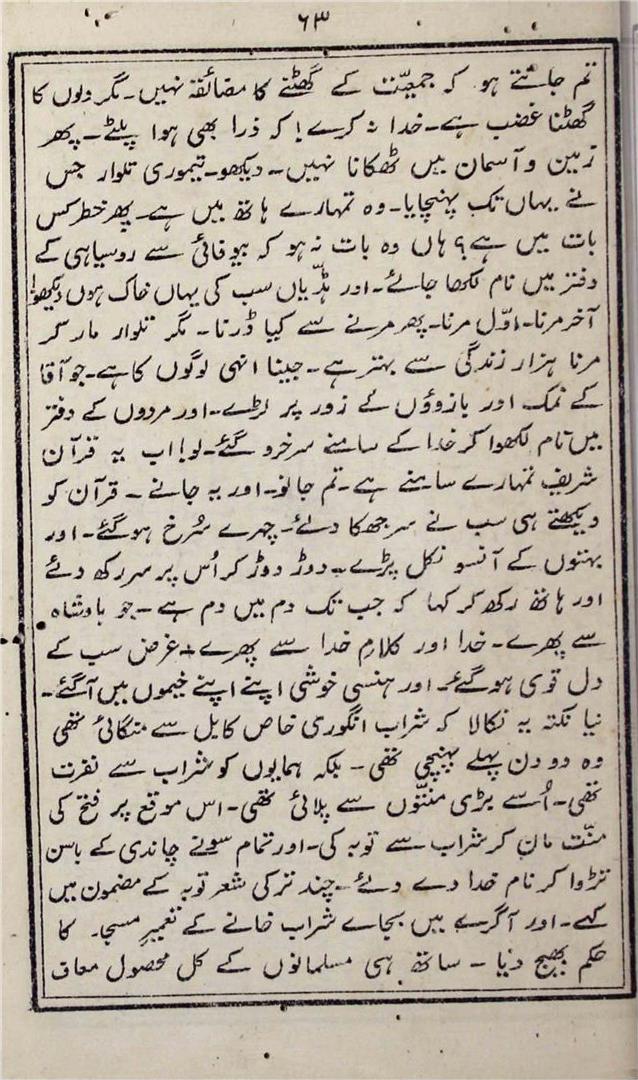 ۶۳
تم جانتے ہو کہ جمعیّت کے گھٹنے کا مضائقہ نہیں۔ مگر دلوں کا
گھٹنا غضب ہے۔ خدا نہ کرے! کہ ذرا بھی ہوا پلٹے۔ پھر
زمین و آسمان میں ٹھکانا نہیں۔ دیکھو۔ تیموری تلوار جس
نے یہاں تک پہنچایا۔ وہ تمہارے ہاتھ میں ہے۔ پھر خطر کس
بات میں ہے؟ ہاں وہ بات نہ ہو کہ بیوفائی سے روسیاہی کے
دفتر میں نام لکھا جائے۔ اور ہڈّیاں سب کی یہاں خاک ہوں دیکھو!
آخر مرنا۔ اوّل مرنا۔ پھر مرنے سے کیا ڈرنا۔ مگر تلوار مار کر
مرنا ہزار زندگی سے بہتر ہے۔ جینا انہی لوگوں کا ہے۔ جو آقا
کے نمک اور بازوؤں کے زور پر لڑے۔ اور مردوں کے دفتر
میں نام لکھوا کر خدا کے سامنے سرخرو گئے۔ لو! اب یہ قرآن
شریف تمہارے سامنے ہے۔ تم جانو۔ اور یہ جانے۔ قرآن کو
دیکھتے ہی سب نے سر جھکا دئے۔ چہرے سُرخ ہو گئے۔ اور
بہتوں کے آنسو نکل پڑے۔ دوڑ دوڑ کر اُس پر سر رکھ دئے
اور ہاتھ رکھ کر کہا کہ جب تک دم میں دم ہے۔ جو بادشاہ
سے پھرے۔ خدا اور کلامِ خدا سے پھرے۔ غرض سب کے
دل قوی ہو گئے۔ اور ہنسی خوشی اپنے اپنے خیموں میں آ گئے۔
نیا نکتہ یہ نکالا کہ شراب انگوری خاص کابل سے منگائی تھی
وہ دو دن پہلے پہنچی تھی۔ بلکہ ہمایوں کو شراب سے نفرت
تھی۔ اُسے بڑی منّتوں سے پلائی تھی۔ اس موقع پر فتح کی
منّت مان کر شراب سے توبہ کی۔ اور تمام سونے چاندی کے باسن
تڑوا کر نام خدا دے دئے۔ چند ترکی شعر توبہ کے مضمون میں
کہے۔ اور آگرے میں بجاے شراب خانے کے تعمیرِ مسجد کا
حکم بھیج دیا۔ ساتھ ہی مسلمانوں کے کل محصول معاف